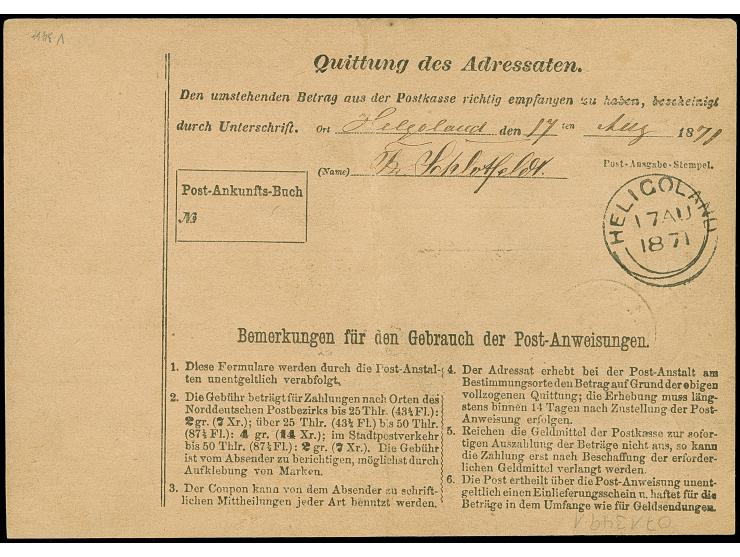 Quittung des Adressaten.
Den umstehenden Betrag aus der Postkasse richtig empfangen zu haben, bescheinigt
durch Unterschrift. Ort Helgoland den 17 ten Aug 1871
(Name) Fr. Schlotfeldt.
Post-Ausgabe-Stempel.
Post-Ankunfts-Buch
№
HELIGOLAND
17 AU
1871
Bemerkungen für den Gebrauch der Post-Anweisungen.
1. Diese Formulare werden durch die Post-Anstal-
ten unentgeltlich verabfolgt.
2. Die Gebühr beträgt für Zahlungen nach Orten des
Norddeutschen Postbezirks bis 25 Thlr. (43¾ Fl.):
2 gr. (7 Xr.); über 25 Thlr. (43¾ Fl.) bis 50 Thlr.
(87½ Fl.): 4 gr. (14 Xr.); im Stadtpostverkehr
bis 50 Thlr. (87½ Fl.): 2 gr. (7 Xr.). Die Gebühr
ist vom Absender zu berichtigen, möglichst durch
Aufklebung von Marken.
3. Der Coupon kann von dem Absender zu schrift-
lichen Mittheilungen jeder Art benutzt werden.
4. Der Adressat erhebt bei der Post-Anstalt am
Bestimmungsorte den Betrag auf Grund der obigen
vollzogenen Quittung; die Erhebung muss läng-
stens binnen 14 Tagen nach Zustellung der Post-
Anweisung erfolgen.
5. Reichen die Geldmittel der Postkasse zur sofor-
tigen Auszahlung der Beträge nicht aus, so kann
die Zahlung erst nach Beschaffung der erforder-
lichen Geldmittel verlangt werden.
6. Die Post ertheilt über die Post-Anweisung unent-
geltlich einen Einlieferungsschein u. haftet für die
Beträge in dem Umfange wie für Geldsendungen.